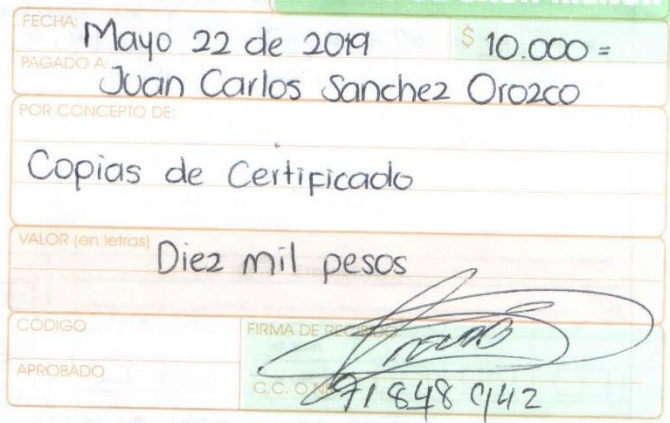 FECHA: Mayo 22 de 2019 $ 10.000=
PAGADO A: Juan Carlos Sanchez Orozco
POR CONCEPTO DE:
Copias de Certificado
VALOR (en letras) Diez mil pesos
CÓDIGO FIRMA DE RECIBIDO
APROBADO C.C. O 71848942